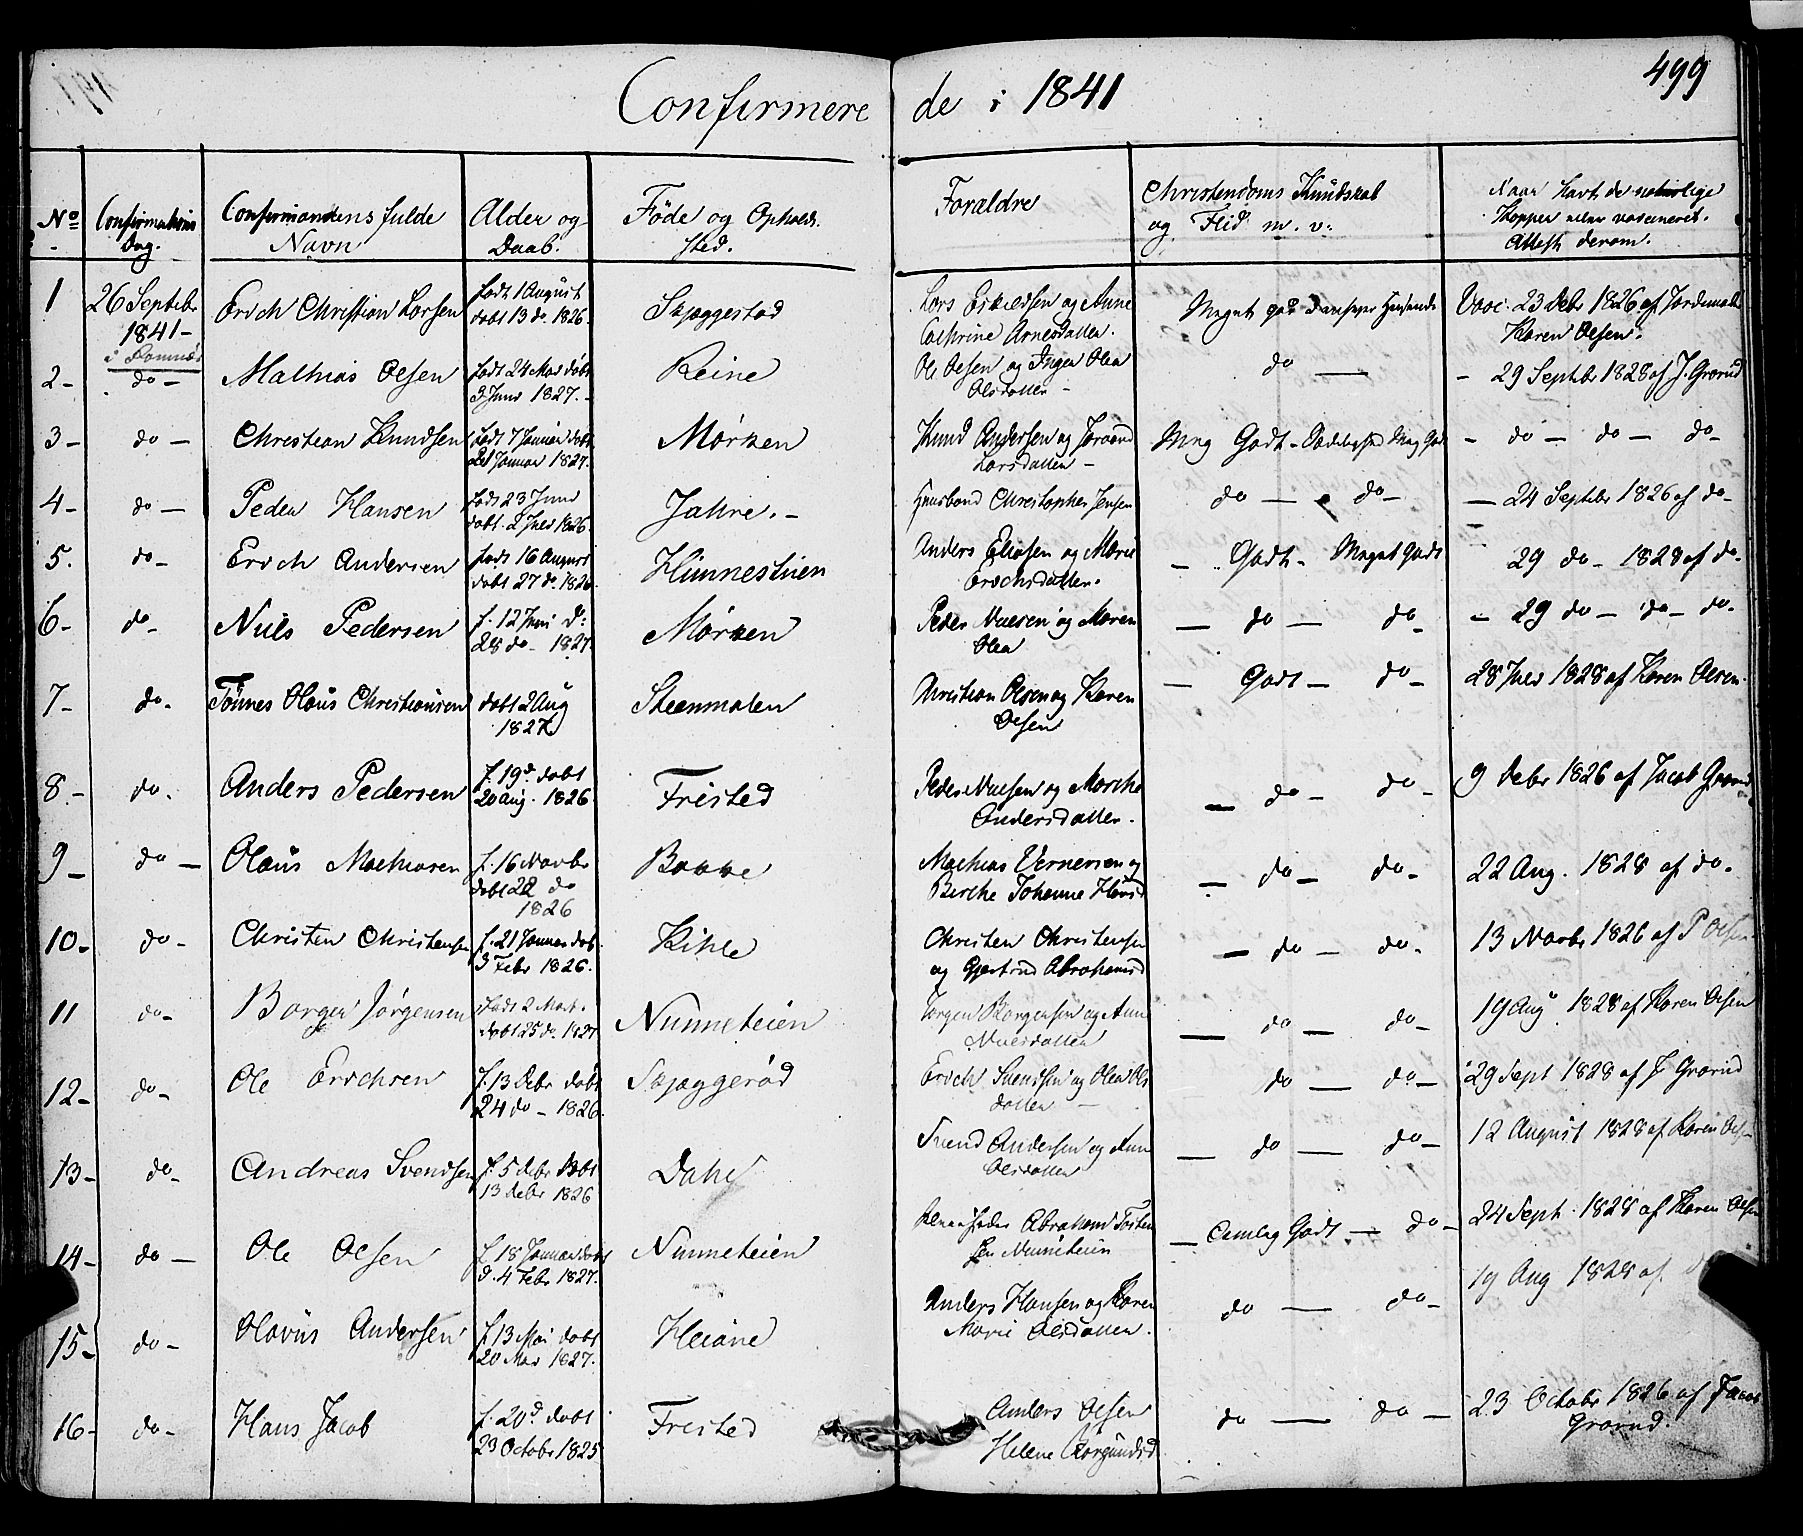 Confirmerede i 1841
499
No
Confirmations Dag.
Confirmandens fulde Navn
Alder og Daab.
Föde og Opholdsted.
Foraldre
Christendoms Kundskab og Flid m. v:
Naar havt de naturlige Kopper eller vaccineret. Attesh derom.
1 26 Septebr 1841 - Erich Christian Larsen födt 1 August döbt 13 do. 1826. Skjaggestad Lars Eskildsen og Anne Cathrine Arnesdatter. Meget god Vacc. 23 Debr 1826 af Jordemoder Karen Olsen.
2 - do - Mathias Olsen födt 24 Mai döbt 3 Juni 1827. - Reine Ole Olsen og Inger Olea Olsdatter - do — - 29 Septebr 1828 af J. Grorud
3 - do - Christian Knudsen födt 7 Januar döbt 21 Januar 1827. Mörken Knud Andersen og Larsdatter - Mug Godt - Mug Godt - do - do - do -
4 - do - Peder Hansen födt 23 Juni döbt. 2 Juli 1826. Jahre. - Huusbond Christopher Jensen do — do - - 24 Septebr 1826 af do -
5. do - Erich Andersen födt 16 August döbt 27 do. 1826 Himnestvien Anders Eliasen og Marie Erichsdatter. - Godt - Meget Godt 29 do - 1828 af do -
6 - do - Niels Pedersen f. 12 Juni d: 28 do - 1827. Mörken Peder Nielsen og Maren Olea — do — do - - 29 do - do - do -
7 - do - Tönnes Olaus Christiansen döbt 2 Aug 1827 Steenmalen Christian Olsen og Karen Olsen — Godt - do - 28 Juli 1828 af Karen Olsen.
8. - do. Anders Pedersen f. 19d. döbt 20 Aug. 1826 Fristed Peder Nielsen og Marthe Andersdatter. — do - do - 9 Debr 1826 af Jacob Grorud
9 - do - Olaus Mathiasen f. 16 Novbr döbt 22 do 1826 Bakke Mathias Vernersen og Berthe Johanne Hansd — do - do - 22 Aug. 1828 af do.
10 - do - Christen Christensen f. 21 Januar döb. 3 Febr 1826. Kihle Christen Christensen og Gjertrud Abrahamsd — do - do - 13 Novbr 1826 af P Olsen
11 do - Borger Jörgensen födt 2 Mart. döbt 25 do. 1827 Nunneteien Jörgen Borgersen og Ann Nielsdatter — do — do - 19 Aug 1828 af Karen Olsen
12 - do - Ole Erichsen f. 13 Debr döbt 24 do - 1826. Skjaggeröd Erich Svendsen og Olea Olsdatter - do — do - 29 Sept 1828 af J Grorud
13 - do - Andreas Svendsen f. 5 Debr döbt 13 Debr 1826 Dahl Svend Andersen og Ann Olsdatter — do — do - 12 August 1828 af Karen Ols-
14 - do - Ole Olsen f. 18 Januar döbt d. 4 Febr 1827. Nunneteien Abraham Torstensen Nunneteien — Temelig Godt — do - 24 Sept. 1828 af Karen Olsen
15 - do - Olavus Andersen f. 13 Mai döbt 20 Mai 1827. Heiane Anders Hansen og Karen Marie Olsdatter. do — do - 19 Aug 1828 af
16 - do - Hans Jacob f. 20d döbt 23 Octobr 1825 Fristed Anders Olsen Helene Borgundsd do — do - 23 Octobr 1826 af Jacob Grorud.